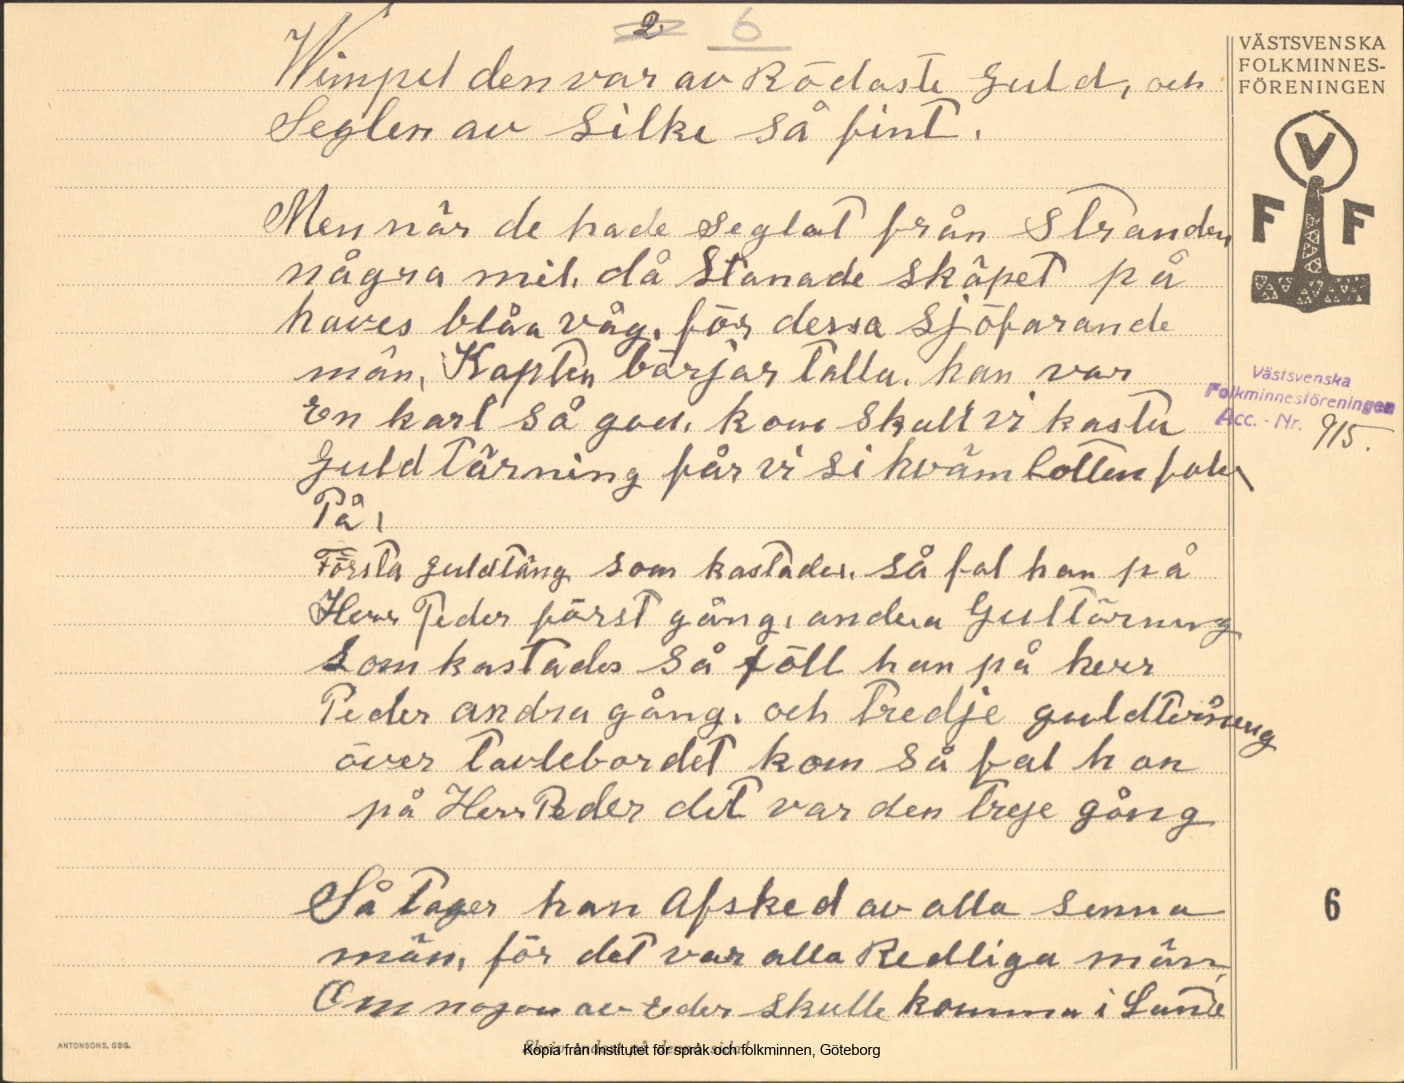 2 6
Wimpel den var av Rödaste Guld, och
Seglen av Silke så fint.
Men när de hade seglat från Stranden
några mil, då Stanade skäpet på
haves blåa våg, för dessa Sjöfarande
män, Kapten börjar talla, han var
En karl så god, kom Skall vi kasta
Guldtärning får vi si hväm Lotten faler
På,
Första guldtäng som kastades, så fal han på
Herr Peder först gång, andra Gultärning
Som kastades så föll han på herr
Peder andra gång, och tredje guldterning
över tavlebordet kom så fal han
på Herr Peder det var den treje gång
Så tager han Afsked av alla senna
män, för det var alla Redliga män,
Om nogon av Eder skulle komma i Lande
VÄSTSVENSKA
FOLKMINNES-
FÖRENINGEN
V
F F
Västsvenska
Folkminnesföreningen
Acc. - Nr. 915.
6
ANTONSONS, GBG.
Skriv endast på denna sida!
Kopia från Institutet för språk och folkminnen, Göteborg